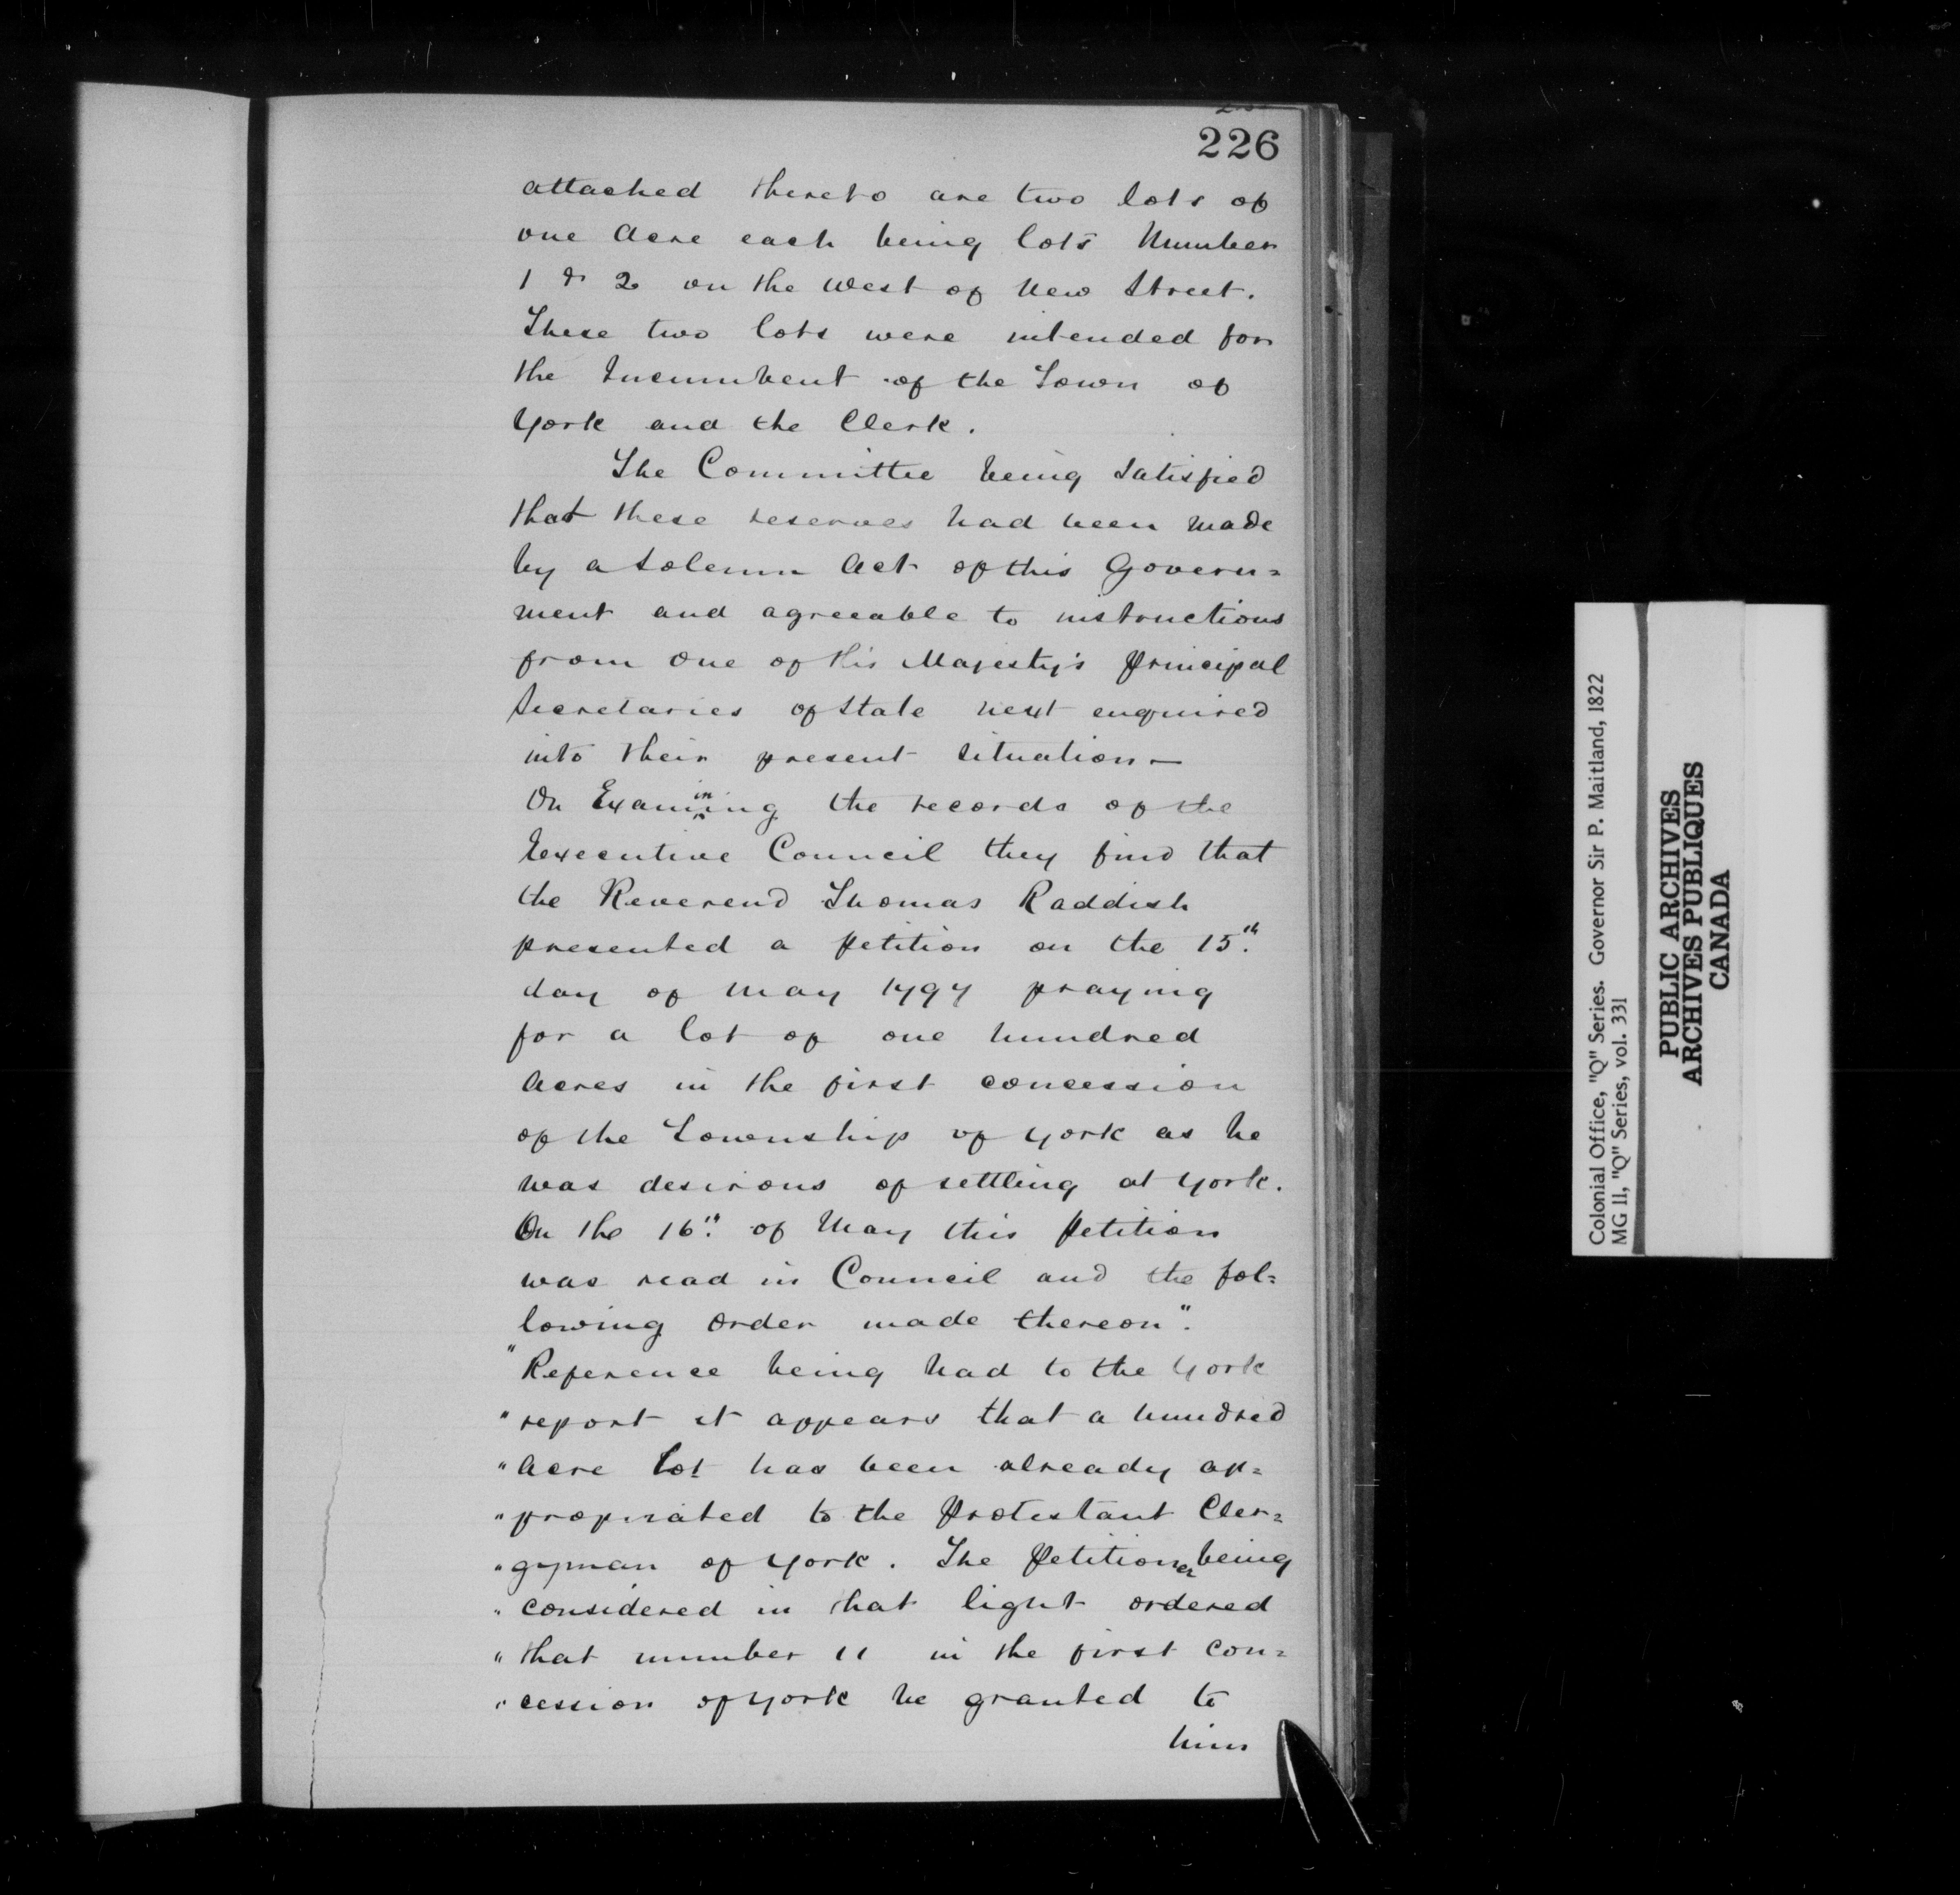 226
attached thereto are two lots of
one Acre each being lots Number
1 & 2 on the West of New Street.
These two lots were intended for
the Incumbent of the Town of
York and the Clerk.
The Committee being Satisfied
that these reserves had been made
by a Solemn Act of this Govern=
ment and agreeable to instructions
from one of His Majesty's Principal
Secretaries of State next enquired
into their present situation—
On Examining the records of the
Executive Council they find that
the Reverend Thomas Raddish
presented a petition on the 15th.
day of May 1797 praying
for a lot of one hundred
Acres in the first concession
of the Township of York as he
was desirous of settling at York.
On the 16th. of May this Petition
was read in Council and the fol=
lowing order made thereon".
"Reference being had to the York
"report it appears that a hundred
"Acre Lot has been already ap=
"propriated to the Protestant Cler=
"gyman of York. The Petitioner being
"considered in that light ordered
"that number 11 in the first con=
"cession of York be granted to
him
Colonial Office, "Q" Series. Governor Sir P. Maitland, 1822
MG 11, "Q" Series, vol. 331
PUBLIC ARCHIVES
ARCHIVES PUBLIQUES
CANADA